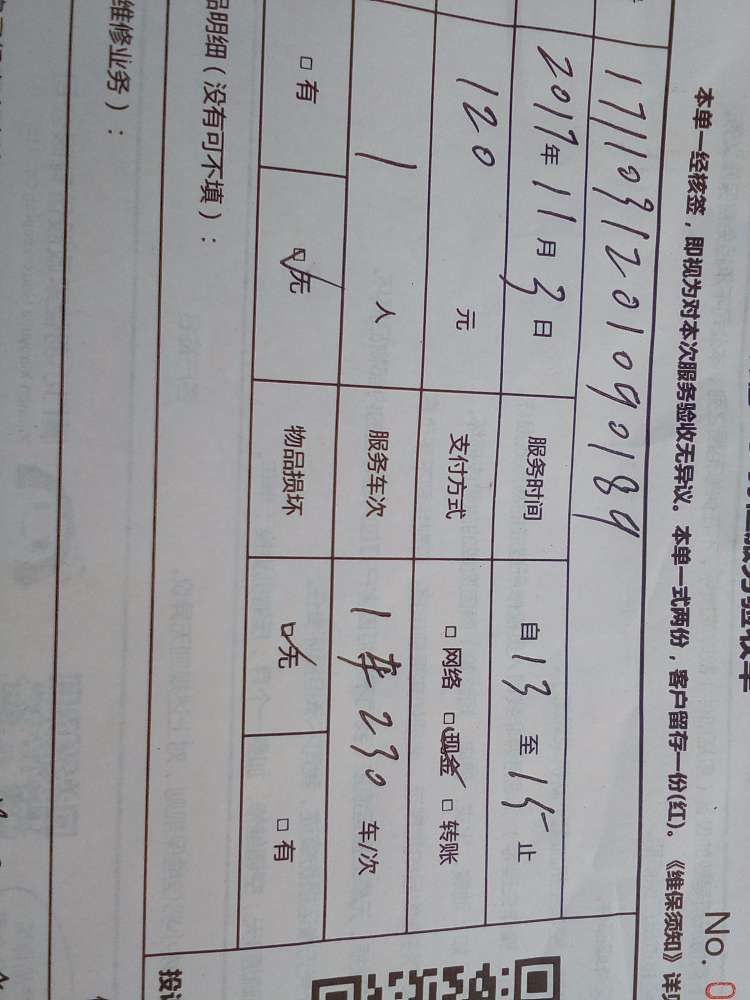 服务验收单
No. 0
本单一经核签，即视为对本次服务验收无异议。本单一式两份，客户留存一份(红)。《维保须知》详
1711031201090189
2017年11月3日 服务时间 自13至15止
120 元 支付方式 □网络 □现金 □转账
1 人 服务车次 1车230 车/次
□有 □无 物品损坏 □无 □有
品明细（没有可不填）：
维修业务）：
投诉